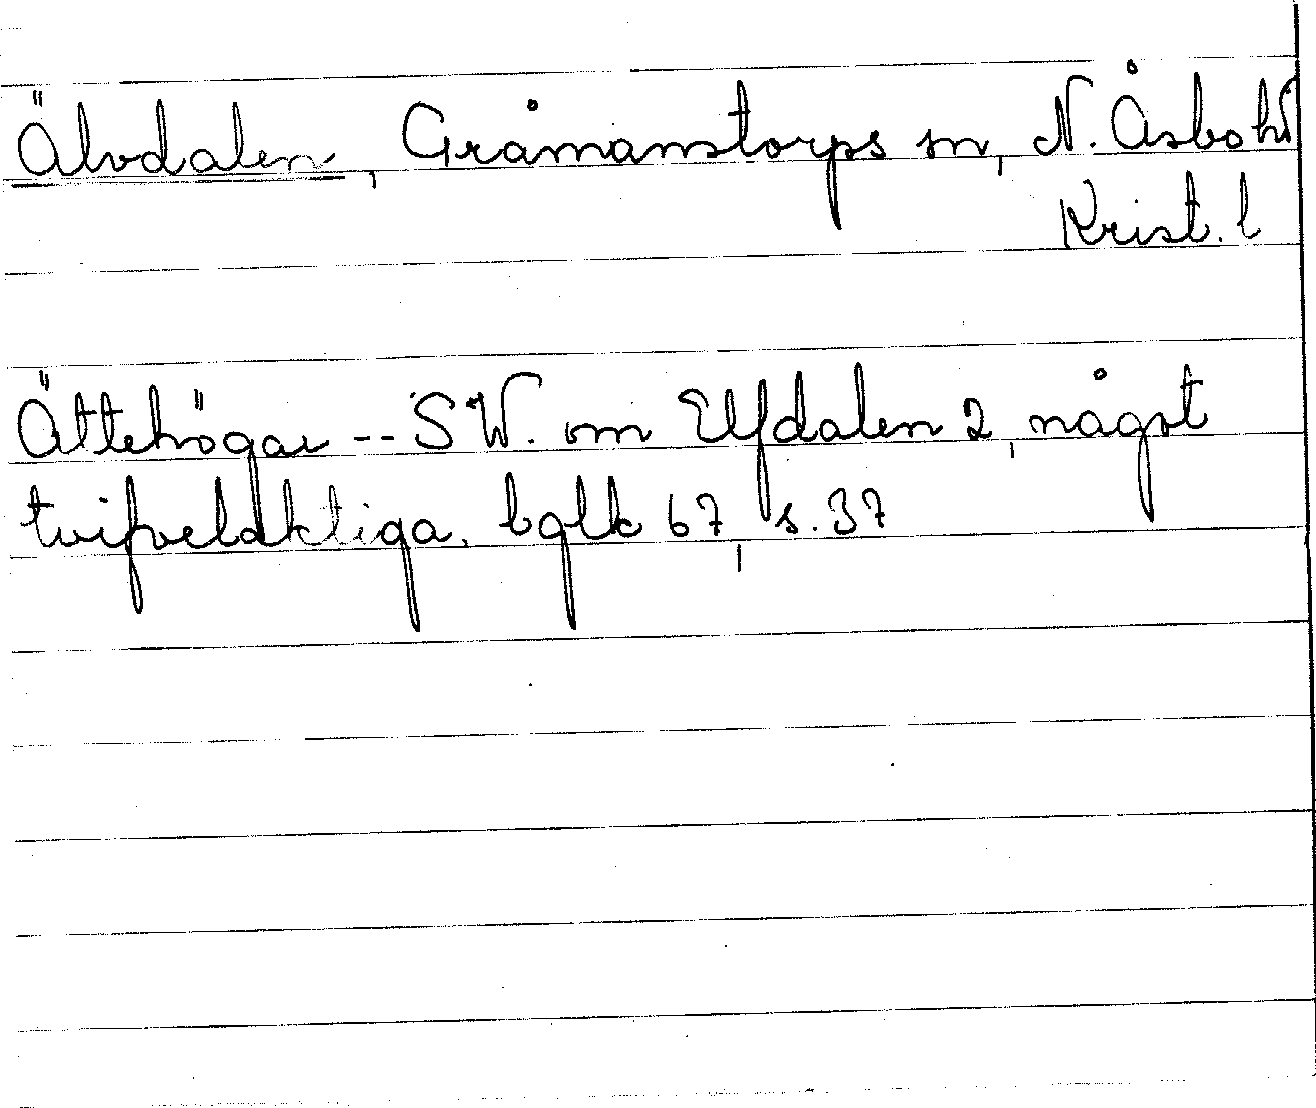 Älvdalen, Gråmanstorps sn, N. Åsbo hd
Krist. l
Ättehögar -- SW. om Elfdalen 2, något
tvifvelaktiga. bglk 67, s. 37